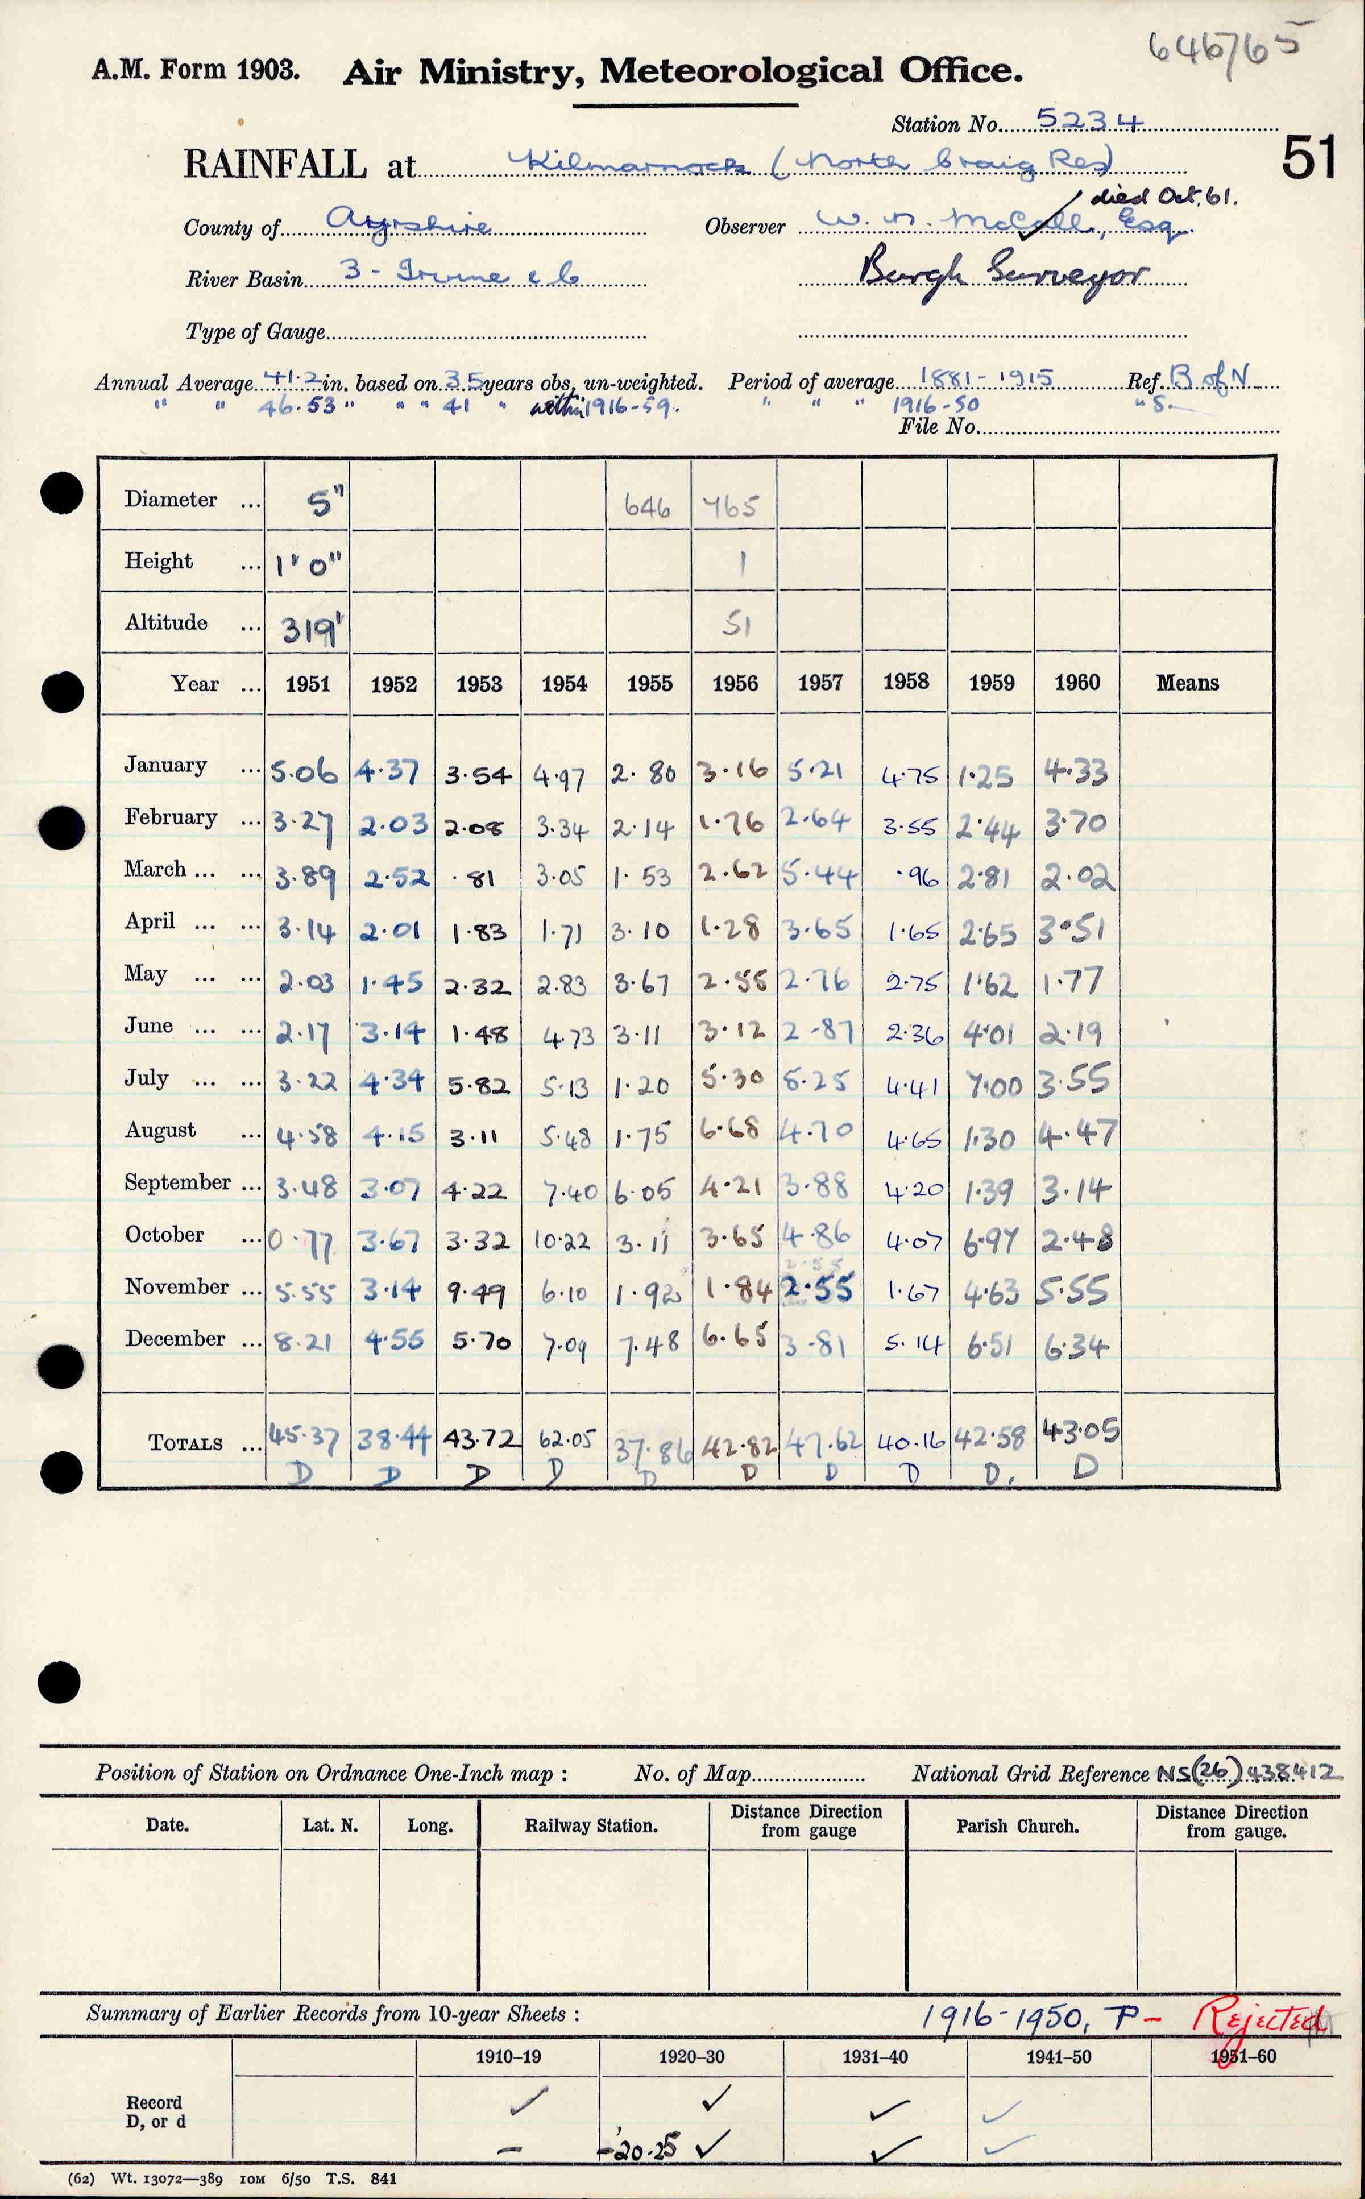 646/65
A.M. Form 1903. Air Ministry, Meteorological Office.
Station No. 5234
RAINFALL at Kilmarnock (North Craig Res) 51
died Oct. 61.
County of Ayrshire Observer W. N. McCall, Esq.
River Basin 3 - Irvine & C Burgh Surveyor
Type of Gauge
Annual Average 41.2 in. based on 35 years obs, un-weighted. Period of average 1881-1915 Ref. B of N
" " 46.53 " " " 41 " within 1916-59. " " " 1916-50 " S
File No.
Diameter ... 5" 646 765
Height ... 1' 0" 1
Altitude ... 319' 51
Year ... 1951 1952 1953 1954 1955 1956 1957 1958 1959 1960 Means
January ... 5.06 4.37 3.54 4.97 2.80 3.16 5.21 4.75 1.25 4.33
February ... 3.27 2.03 2.08 3.34 2.14 1.76 2.64 3.55 2.44 3.70
March ... ... 3.89 2.52 .81 3.05 1.53 2.62 5.44 .96 2.81 2.02
April ... ... 3.14 2.01 1.83 1.71 3.10 1.28 3.65 1.65 2.65 3.51
May ... ... 2.03 1.45 2.32 2.83 3.67 2.55 2.76 2.75 1.62 1.77
June ... ... 2.17 3.14 1.48 4.73 3.11 3.12 2.87 2.36 4.01 2.19
July ... ... 3.22 4.34 5.82 5.13 1.20 5.30 5.25 4.41 7.00 3.55
August ... 4.58 4.15 3.11 5.48 1.75 6.68 4.70 4.65 1.30 4.47
September ... 3.48 3.07 4.22 7.40 6.05 4.21 3.88 4.20 1.39 3.14
October ... 0.77 3.67 3.32 10.22 3.11 3.65 4.86 4.07 6.97 2.48
November ... 5.55 3.14 9.49 6.10 1.92 1.84 2.55 1.67 4.63 5.55
December ... 8.21 4.55 5.70 7.09 7.48 6.65 3.81 5.14 6.51 6.34
TOTALS ... 45.37 38.44 43.72 62.05 37.86 42.82 47.62 40.16 42.58 43.05
D D D D D D D D D. D
Position of Station on Ordnance One-Inch map : No. of Map National Grid Reference NS(26)438412
Date. Lat. N. Long. Railway Station. Distance Direction from gauge Parish Church. Distance Direction from gauge.
Summary of Earlier Records from 10-year Sheets : 1916-1950, P - Rejected
1910–19 1920–30 1931–40 1941–50 1951–60
Record ✓ ✓ ✓ ✓
D, or d
– -20-25 ✓ ✓ ✓
(62) Wt. 13072—389 10M 6/50 T.S. 841